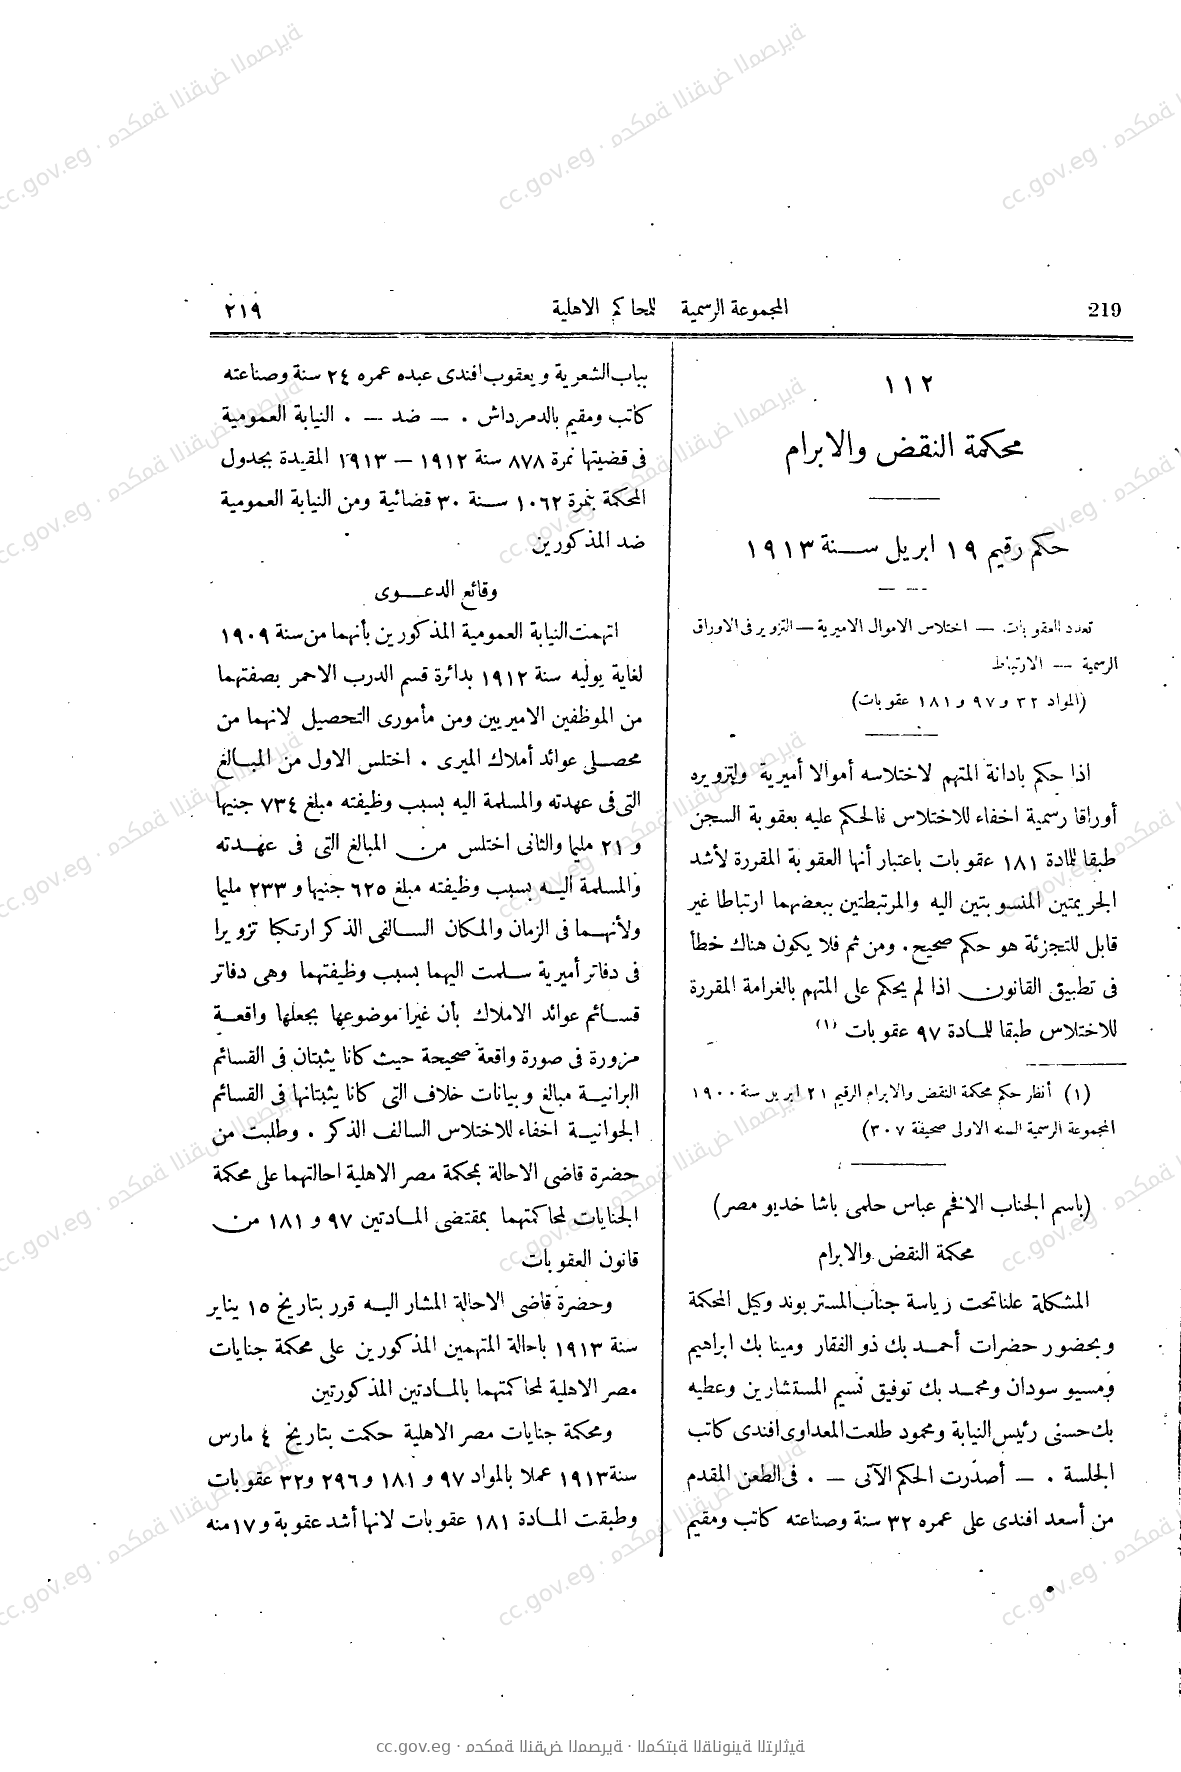 219 المجموعة الرسمية للمحاكم الاهلية ٢١٩
١١٢
محكمة النقض والابرام
حكم رقيم ١٩ ابريل سنة ١٩١٣
تعدد العقوبات — اختلاس الاموال الاميرية — التزوير فى الاوراق
الرسمية — الارتباط
(المواد ٣٢ و ٩٧ و ١٨١ عقوبات)
اذا حكم بادانة المتهم لاختلاسه أموالا أميرية ولتزويره
أوراقا رسمية اخفاء للاختلاس فالحكم عليه بعقوبة السجن
طبقا للمادة ١٨١ عقوبات باعتبار أنها العقوبة المقررة لأشد
الجريمتين المنسوبتين اليه والمرتبطتين ببعضهما ارتباطا غير
قابل للتجزئة هو حكم صحيح. ومن ثم فلا يكون هناك خطأ
فى تطبيق القانون اذا لم يحكم على المتهم بالغرامة المقررة
للاختلاس طبقا للمادة ٩٧ عقوبات (١)
(١) أنظر حكم محكمة النقض والابرام الرقيم ٢١ ابريل سنة ١٩٠٠
المجموعة الرسمية السنه الاولى صحيفة ٣٠٧)
(باسم الجناب الافخم عباس حلمى باشا خديو مصر)
محكمة النقض والابرام
المشكلة علنا تحت رياسة جناب المستر بوند وكيل المحكمة
وبحضور حضرات أحمد بك ذو الفقار ومينا بك ابراهيم
ومسيو سودان ومحمد بك توفيق نسيم المستشارين وعطيه
بك حسنى رئيس النيابة ومحمود طلعت المعداوى افندى كاتب
الجلسة . — أصدرت الحكم الآتى — . فى الطعن المقدم
من أسعد افندى على عمره ٣٢ سنة وصناعته كاتب ومقيم
بباب الشعرية ويعقوب افندى عبده عمره ٢٤ سنة وصناعته
كاتب ومقيم بالدمرداش . — ضد — . النيابة العمومية
فى قضيتها نمرة ٨٧٨ سنة ١٩١٢ — ١٩١٣ المقيدة بجدول
المحكمة بنمرة ١٠٦٢ سنة ٣٠ قضائية ومن النيابة العمومية
ضد المذكورين
وقائع الدعوى
اتهمت النيابة العمومية المذكورين بأنهما من سنة ١٩٠٩
لغاية يوليه سنة ١٩١٢ بدائرة قسم الدرب الاحمر بصفتهما
من الموظفين الاميريين ومن مأمورى التحصيل لانهما من
محصلى عوائد أملاك الميرى . اختلس الاول من المبالغ
التى فى عهدته والمسلمة اليه بسبب وظيفته مبلغ ٧٣٤ جنيها
و ٢١ مليما والثانى اختلس من المبالغ التى فى عهدته
والمسلمة اليه بسبب وظيفته مبلغ ٦٢٥ جنيها و ٢٣٣ مليما
ولأنهما فى الزمان والمكان السالفى الذكر ارتكبا تزويرا
فى دفاتر أميرية سلمت اليهما بسبب وظيفتهما وهى دفاتر
قسائم عوائد الاملاك بأن غيرا موضوعها بجعلها واقعة
مزورة فى صورة واقعة صحيحة حيث كانا يثبتان فى القسائم
البرانية مبالغ وبيانات خلاف التى كانا يثبتانها فى القسائم
الجوانية اخفاء للاختلاس السالف الذكر . وطلبت من
حضرة قاضى الاحالة بمحكمة مصر الاهلية احالتهما على محكمة
الجنايات لمحاكمتهما بمقتضى المادتين ٩٧ و ١٨١ من
قانون العقوبات
وحضرة قاضى الاحالة المشار اليه قرر بتاريخ ١٥ يناير
سنة ١٩١٣ باحالة المتهمين المذكورين على محكمة جنايات
مصر الاهلية لمحاكمتهما بالمادتين المذكورتين
ومحكمة جنايات مصر الاهلية حكمت بتاريخ ٤ مارس
سنة ١٩١٣ عملا بالمواد ٩٧ و ١٨١ و ٢٩٦ و ٣٢ عقوبات
وطبقت المادة ١٨١ عقوبات لانها أشد عقوبة و ١٧ منه
cc.gov.eg · محكمة النقض المصرية · المكتبة القانونية التراثية